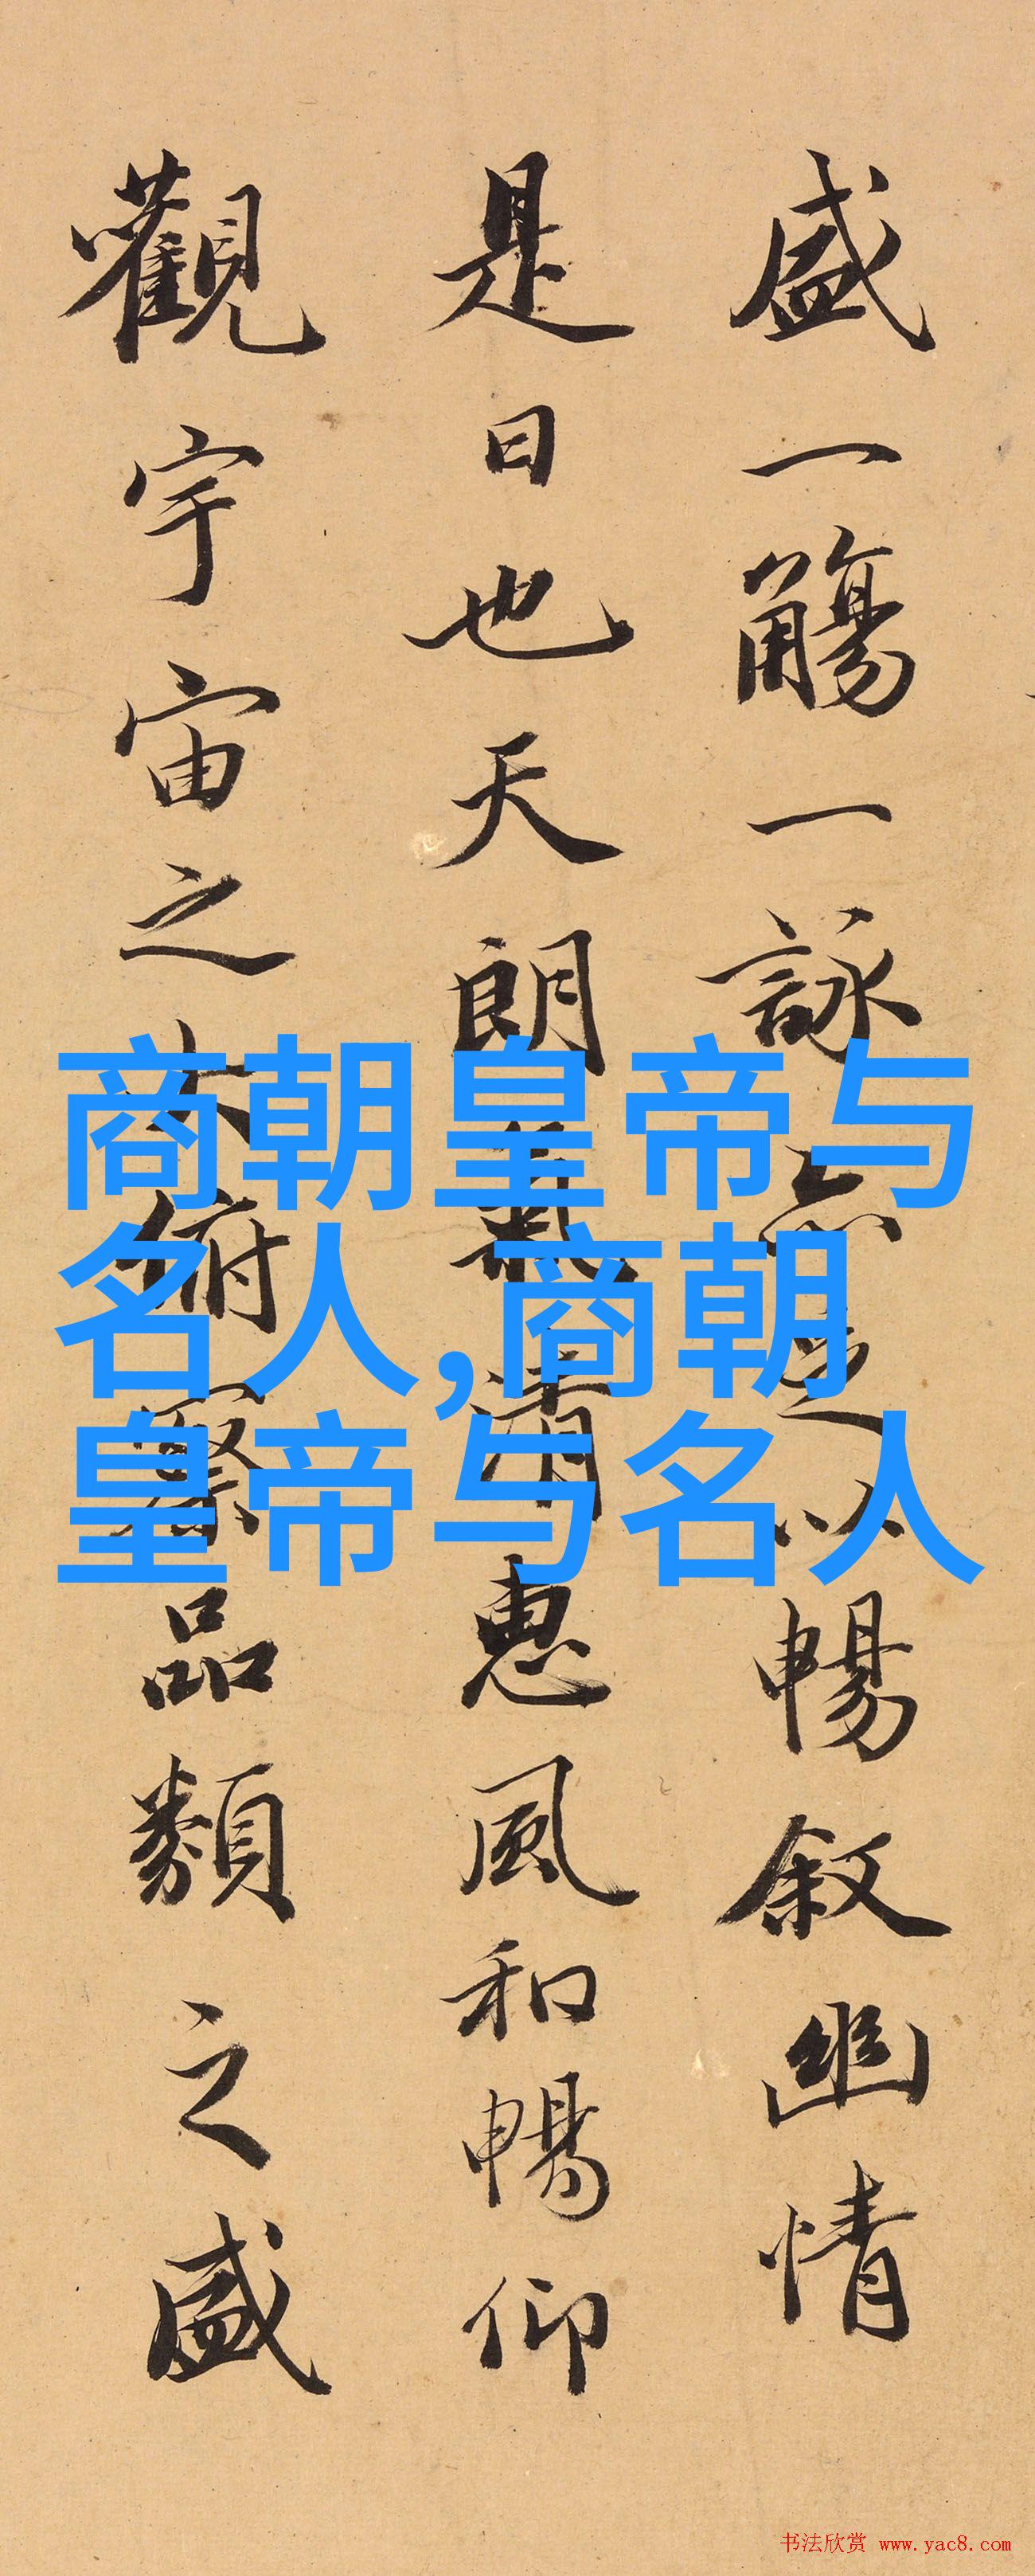 盛一觴一詠亦足以暢敘幽情
是日也天朗氣清惠風和暢仰
觀宇宙之大俯察品類之盛
商朝皇帝与
名人,商朝
皇帝与名人
书法欣赏 www.yac8.com